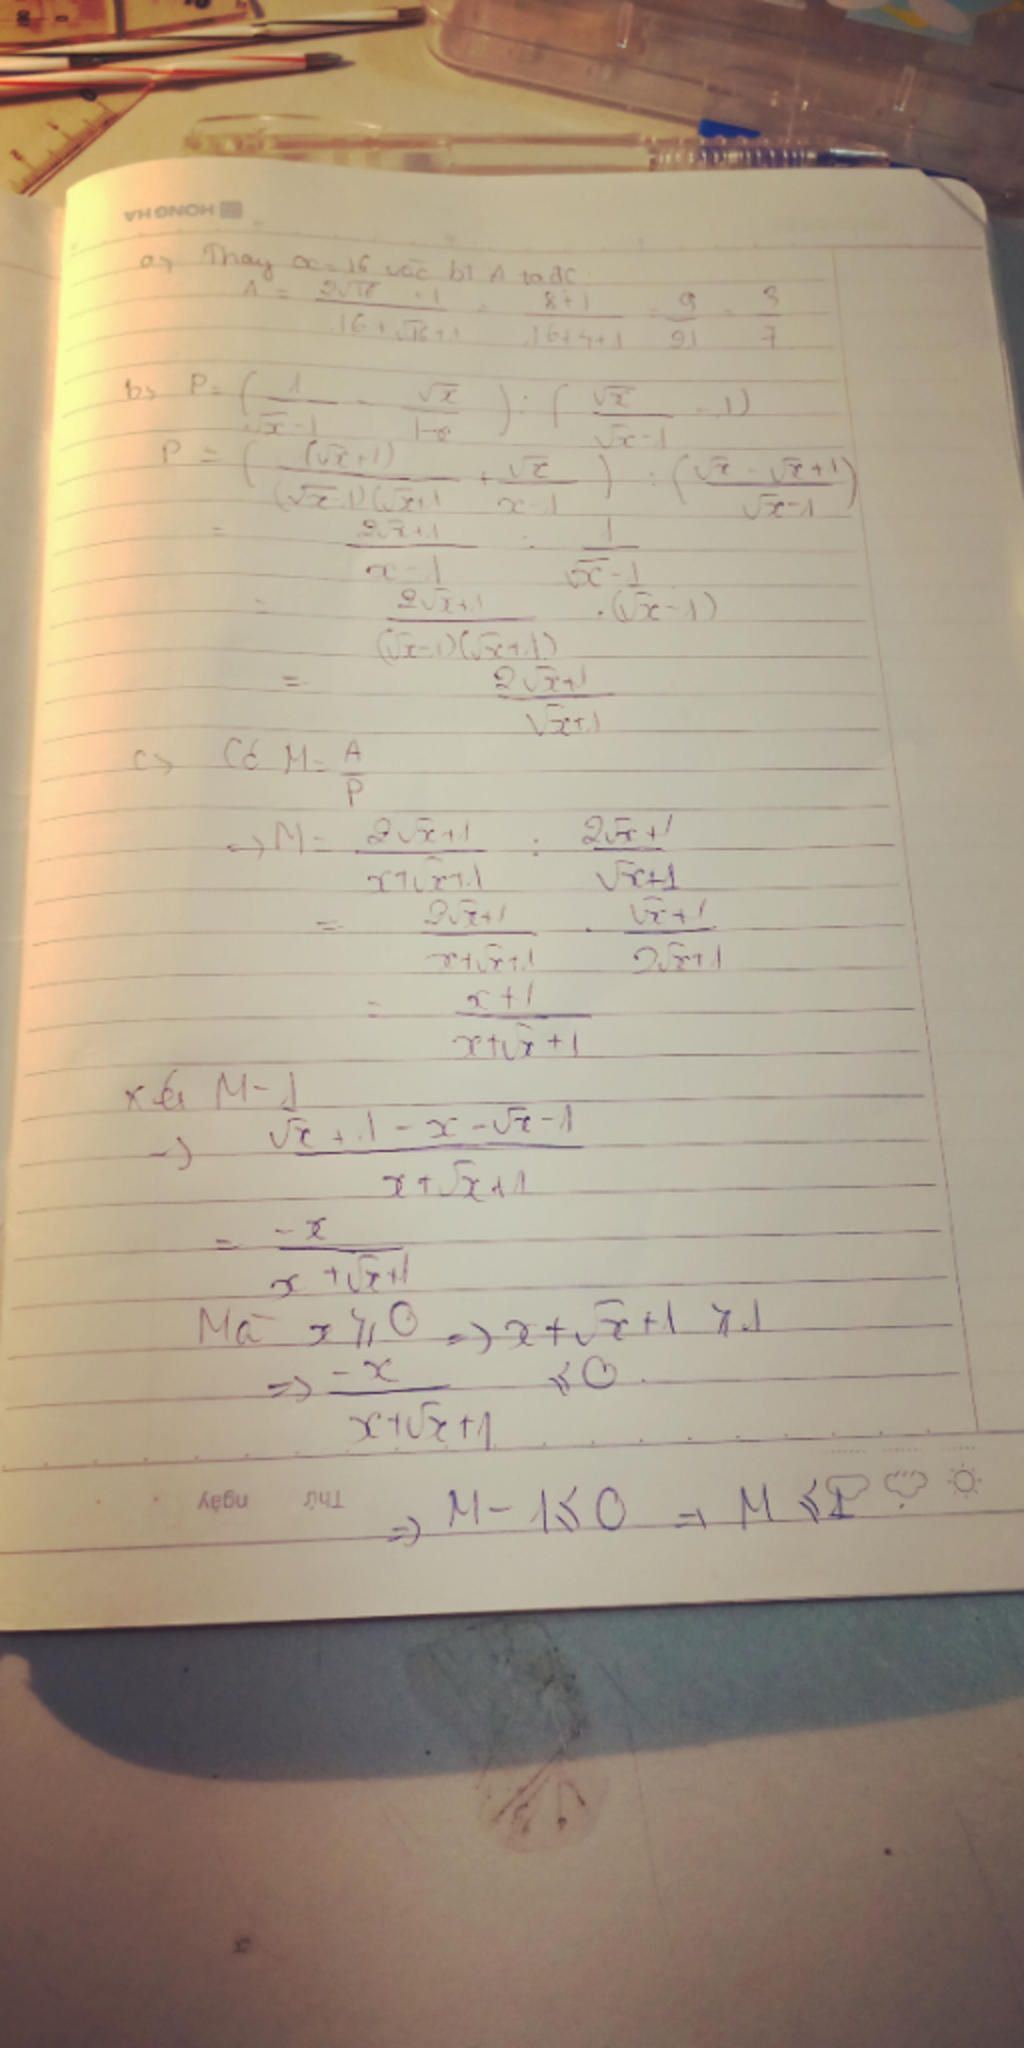 HONG HA
a, Thay x=16 vào bt A ta đc:
A = (2√16 + 1)/(16+√16+1) = (8+1)/(16+4+1) = 9/21 = 3/7
b, P = (1/(√x-1) - √x/(1-x)) : (√x/(√x-1) - 1)
P = ((√x+1)/((√x-1)(√x+1) + √x/(x-1)) : ((√x - √x+1)/(√x-1))
= (2√x+1)/(x-1) : 1/(√x-1)
= (2√x+1)/((√x-1)(√x+1)) · (√x-1)
= (2√x+1)/(√x+1)
c, Có M = A/P
→ M = (2√x+1)/(x+√x+1) : (2√x+1)/(√x+1)
= (2√x+1)/(x+√x+1) · (√x+1)/(2√x+1)
= (x+1)/(x+√x+1)
xét M-1
→ (√x+1-x-√x-1)/(x+√x+1)
= -x/(x+√x+1)
Mà x ⩾ 0 => x+√x+1 ⩾ 1
=> -x/(x+√x+1) ⩽ 0.
Thứ ngày
=> M-1 ⩽ 0 => M ⩽ 1